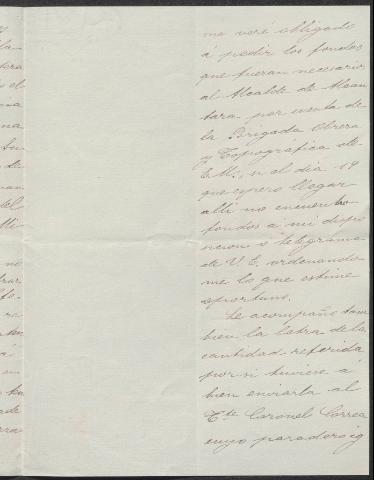 me veré obligado
á pedir los fondos
que fueran necesarios
al Alcalde de Alcan
tara por cuenta de
la Brigada Obrera
y Topográfica de
E. M., si el dia 19
que espero llegar
alli no encuentro
fondos á mi dispo
sicion ó telegrama
de V. E. ordenando
me lo que estime
oportuno.
Le acompaño tam
bien la letra de la
cantidad referida
por si tuviere á
bien enviarla al
Tte Coronel Correa
cuyo paradero ig